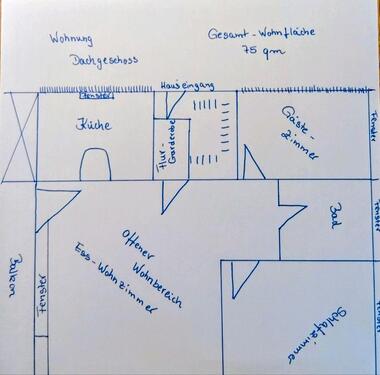 Wohnung
Dachgeschoss
Gesamt-Wohnfläche
75 qm
Hauseingang
Fenster
Küche
Flur-
Garderobe
Gäste-
zimmer
Fenster
Fenster
Bad
Balkon
Fenster
Offener
Wohnbereich
Ess-Wohnzimmer
Fenster
Schlafzimmer